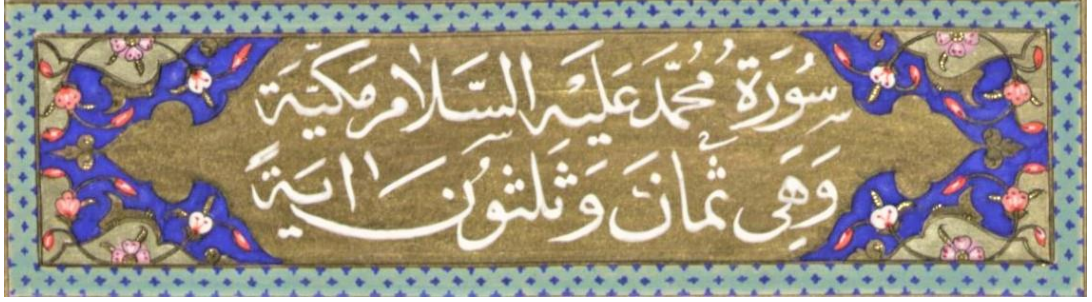 سُورَةُ مُحَمَّدَ عَلَيْهِ السَّلَامِ مَكِّيَّة
وَهِيَ ثَمَانَ وَثَلٰثُونَ اٰيَةً